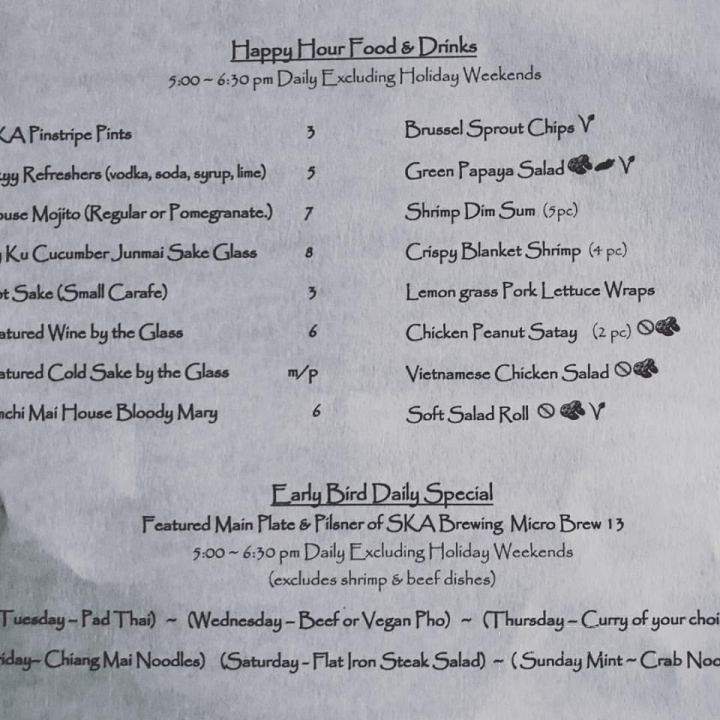 Happy Hour Food & Drinks
5:00 ~ 6:30 pm Daily Excluding Holiday Weekends
KA Pinstripe Pints 3
yy Refreshers (vodka, soda, syrup, lime) 5
ouse Mojito (Regular or Pomegranate.) 7
Ku Cucumber Junmai Sake Glass 8
ot Sake (Small Carafe) 3
atured Wine by the Glass 6
atured Cold Sake by the Glass m/p
nchi Mai House Bloody Mary 6
Brussel Sprout Chips V
Green Papaya Salad V
Shrimp Dim Sum (5pc)
Crispy Blanket Shrimp (4 pc)
Lemon grass Pork Lettuce Wraps
Chicken Peanut Satay (2 pc)
Vietnamese Chicken Salad
Soft Salad Roll V
Early Bird Daily Special
Featured Main Plate & Pilsner of SKA Brewing Micro Brew 13
5:00 ~ 6:30 pm Daily Excluding Holiday Weekends
(excludes shrimp & beef dishes)
Tuesday – Pad Thai) ~ (Wednesday – Beef or Vegan Pho) ~ (Thursday – Curry of your choi
iday– Chiang Mai Noodles) (Saturday - Flat Iron Steak Salad) ~ ( Sunday Mint ~ Crab Noo